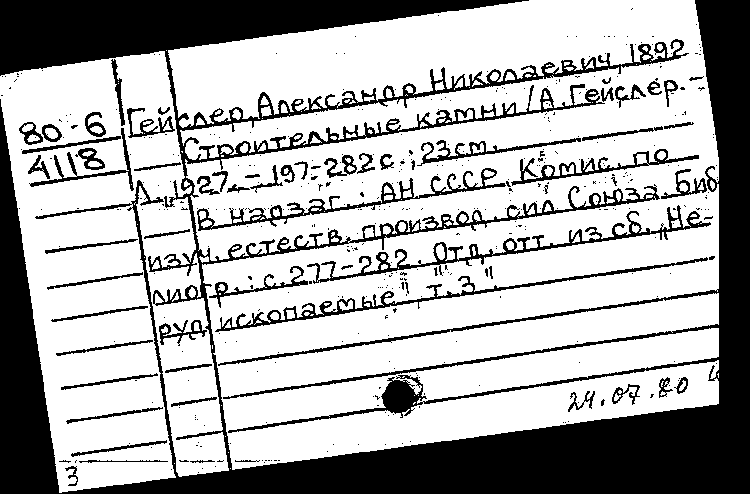 80-6
4118
Гейслер, Александр Николаевич, 1892
Строительные камни / А. Гейслер. –
Л., 1927. – 197-282 с.; 23 см.
В надзаг.: АН СССР, Комис. по
изуч. естеств. производ. сил Союза. Биб
лиогр.: с. 277-282. Отд. отт. из сб. „Не-
руд. ископаемые" т. 3".
24.07.80
3